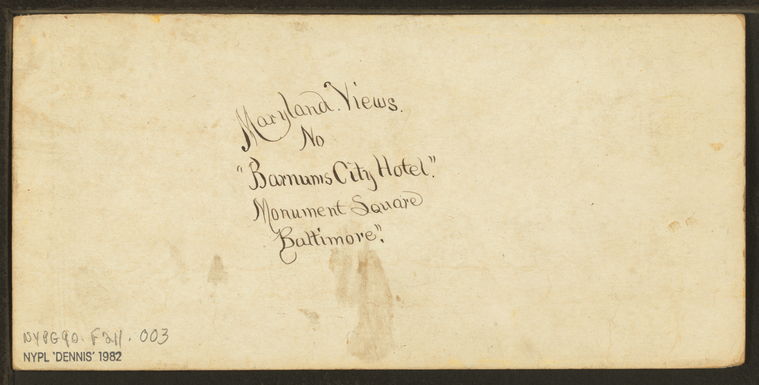 Maryland Views.
No
"Barnums City Hotel".
Monument Square
Baltimore".
NYPG90. F211. 003
NYPL 'DENNIS' 1982